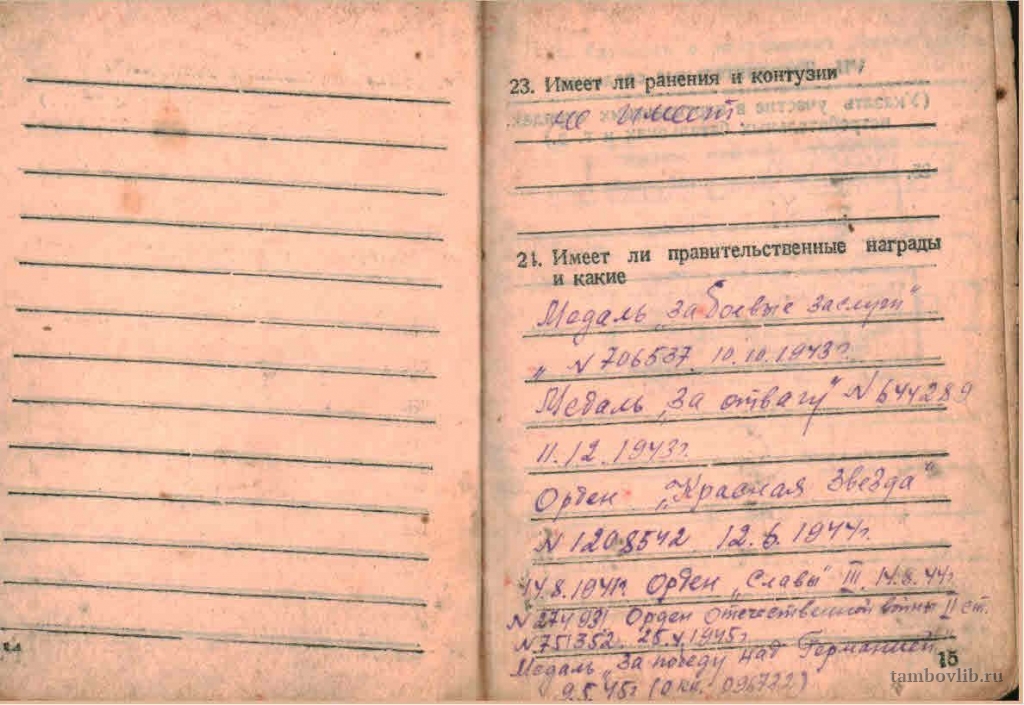 23. Имеет ли ранения и контузии
не имеет
24. Имеет ли правительственные награды
и какие
Медаль „За боевые заслуги"
„ N 706537. 10.10.1943г.
Медаль „За отвагу" N 644289
11.12.1943г.
Орден „Красная Звезда"
N 1208542 12.6.1944г.
14.8.1944г. Орден „Славы" III. 14.8.44г.
N 274931 Орден Отечественной войны II ст.
N 751352. 25.V.1945г.
Медаль „За победу над Германией"
9.5.45г (096772)
15
tambovlib.ru